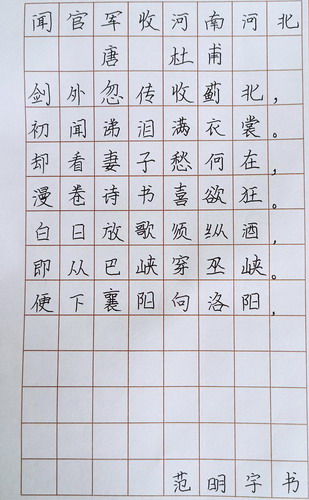 闻官军收河南河北
唐 杜甫
剑外忽传收蓟北，
初闻涕泪满衣裳。
却看妻子愁何在，
漫卷诗书喜欲狂。
白日放歌须纵酒，
即从巴峡穿巫峡。
便下襄阳向洛阳，
范明宇书